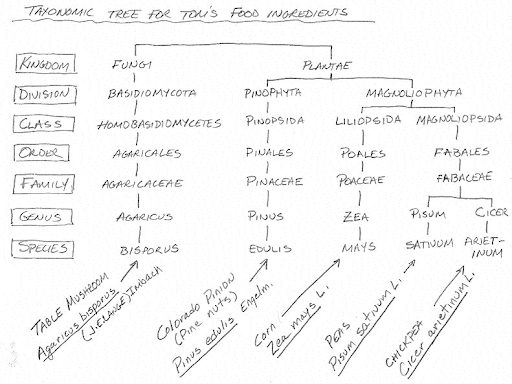 TAXONOMIC TREE FOR TOM'S FOOD INGREDIENTS
KINGDOM FUNGI PLANTAE
DIVISION BASIDIOMYCOTA PINOPHYTA MAGNOLIOPHYTA
CLASS HOMOBASIDIOMYCETES PINOPSIDA LILIOPSIDA MAGNOLIOPSIDA
ORDER AGARICALES PINALES POALES FABALES
FAMILY AGARICACEAE PINACEAE POACEAE FABACEAE
GENUS AGARICUS PINUS ZEA PISUM CICER
SPECIES BISPORUS EDULIS MAYS SATIVUM ARIET-
INUM
TABLE MUSHROOM
Agaricus bisporus
(J.E.LANGE) Imbach
Colorado Pinion
(Pine nuts)
Pinus edulis Engelm.
Corn
Zea mays L.
PEAS
Pisum sativum L.
CHICKPEA
Cicer arietinum L.